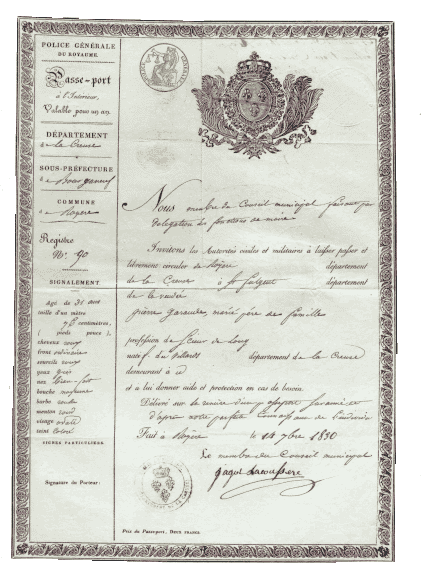 POLICE GÉNÉRALE
DU ROYAUME.
Passe-port
à l'Intérieur,
Valable pour un an.
DÉPARTEMENT
de la Creuse
SOUS-PRÉFECTURE
de Bourganeuf
COMMUNE
de Royère
Registre
N°. 90
SIGNALEMENT.
Agé de 31 ans
taille d'un mètre
centimètres,
( pieds pouces ),
cheveux
front ordinaire
sourcils
yeux gris
nez bien fait
bouche moyenne
barbe
menton rond
visage ovale
teint coloré
SIGNES PARTICULIERS.
Signature du Porteur:
Nous membre du Conseil municipal faisant par
délégation les fonctions de maire
Invitons les Autorités civiles et militaires à laisser passer et
librement circuler de Royère département
de la Creuse à St Fulgent département
de la vendée
pierre marié père de famille
profession de Scieur de long
natif du villard département de la Creuse
demeurant à
et à lui donner aide et protection en cas de besoin.
Délivré sur
d'après notre parfaite Connaissance de
Fait à Royère le 14 7bre 1830
Le membre du Conseil municipal
Prix du Passeport, DEUX FRANCS.